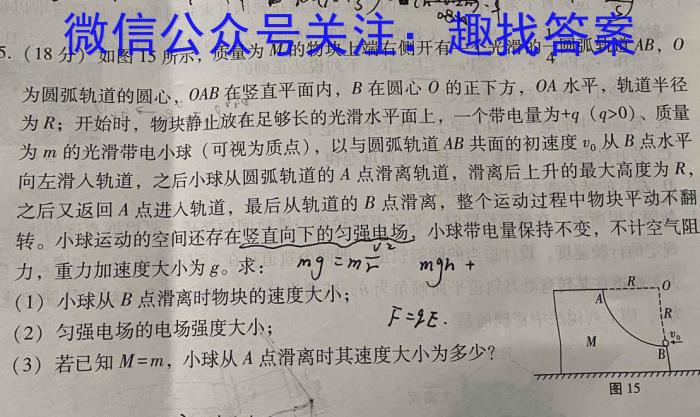 微信公众号关注：趣找答案
5.（18分）如图15所示，质量为M的物块上端右侧开有一个光滑的1/4圆弧轨道AB，O
为圆弧轨道的圆心，OAB在竖直平面内，B在圆心O的正下方，OA水平，轨道半径
为R；开始时，物块静止放在足够长的光滑水平面上，一个带电量为+q（q>0）、质量
为m的光滑带电小球（可视为质点），以与圆弧轨道AB共面的初速度v₀从B点水平
向左滑入轨道，之后小球从圆弧轨道的A点滑离轨道，滑离后上升的最大高度为R，
之后又返回A点进入轨道，最后从轨道的B点滑离，整个运动过程中物块平动不翻
转。小球运动的空间还存在竖直向下的匀强电场，小球带电量保持不变，不计空气阻
力，重力加速度大小为g。求：
mg=m v²/r
mgh+
（1）小球从B点滑离时物块的速度大小；
（2）匀强电场的电场强度大小；
F=qE.
（3）若已知M=m，小球从A点滑离时其速度大小为多少？
R
A
O
R
M
v₀
B
图15